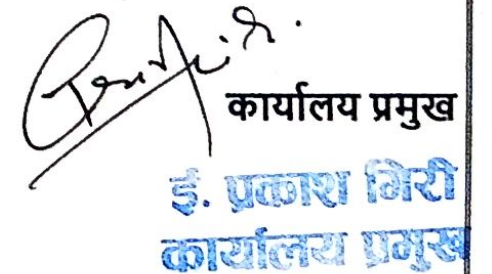 कार्यालय प्रमुख
ई. प्रकाश गिरी
कार्यालय प्रमुख